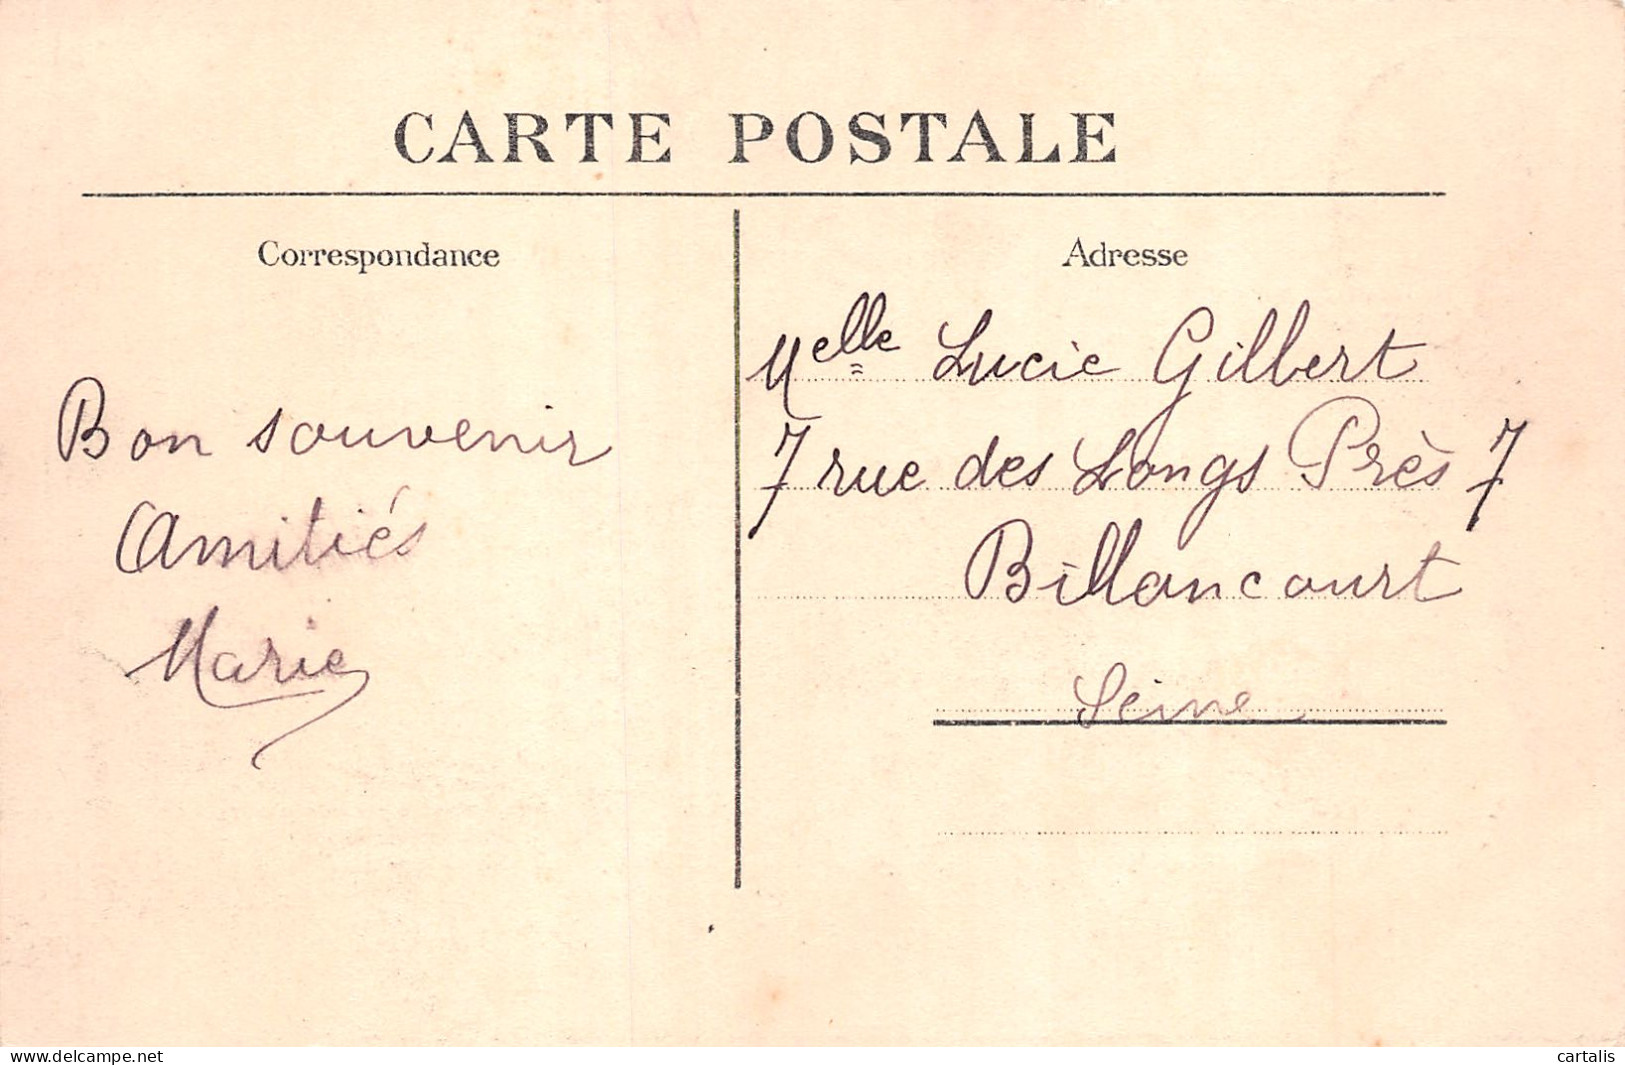 CARTE POSTALE
Correspondance
Bon souvenir
Amitiés
Marie
Adresse
Melle Lucie Gilbert
7 rue des Longs Près 7
Billancourt
Seine
www.delcampe.net
cartalis